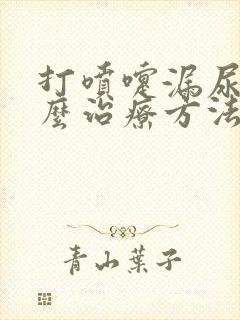 打噴嚏漏尿
麼治療方法
青山葉子